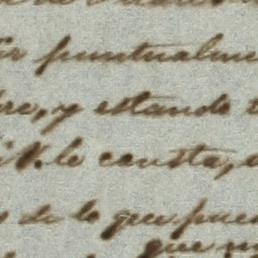 puntualme
re, y estando
V. le consta,
de lo que pue
que